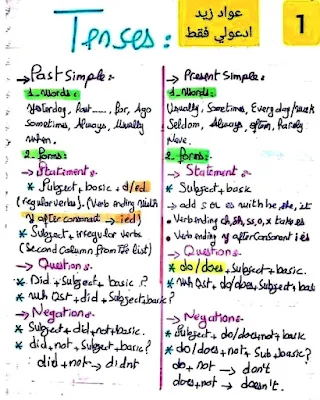 عواد زيد
ادعولي فقط
1
Tenses:
→ Past Simple:
1- Words:
Yesterday, Last ....., for, Ago
Sometimes, Always, Usually
when.
2- forms:
→ Statement:
* Subject + basic + d/ed
(regular verbs). (Verb ending with
y after consonant → ied)
* Subject + irregular verbs
(Second Column from the list)
→ Questions:
* Did + Subject + basic?
* wh Qst + did + Subject + basic?
→ Negations:
* Subject + did + not + basic.
* did + not + Subject + basic?
did + not → didnt
→ Present Simple:
1- Words:
Usually, Sometimes, Every day/week
Seldom, Always, often, Rarely
Neve.
2- forms:
→ Statement:
* Subject + basic
→ add s or es with he, she, it
• Verb ending ch, sh, ss, o, x take es
• Verb ending y after consonant ies
→ Questions:
* do/does + Subject + basic.
* wh Qst + do/does + Subject + basic
→ Negations:
* Subject + do/does + not + basic
* do/does + not + Sub + basic?
do + not → don't
does + not → doesn't.